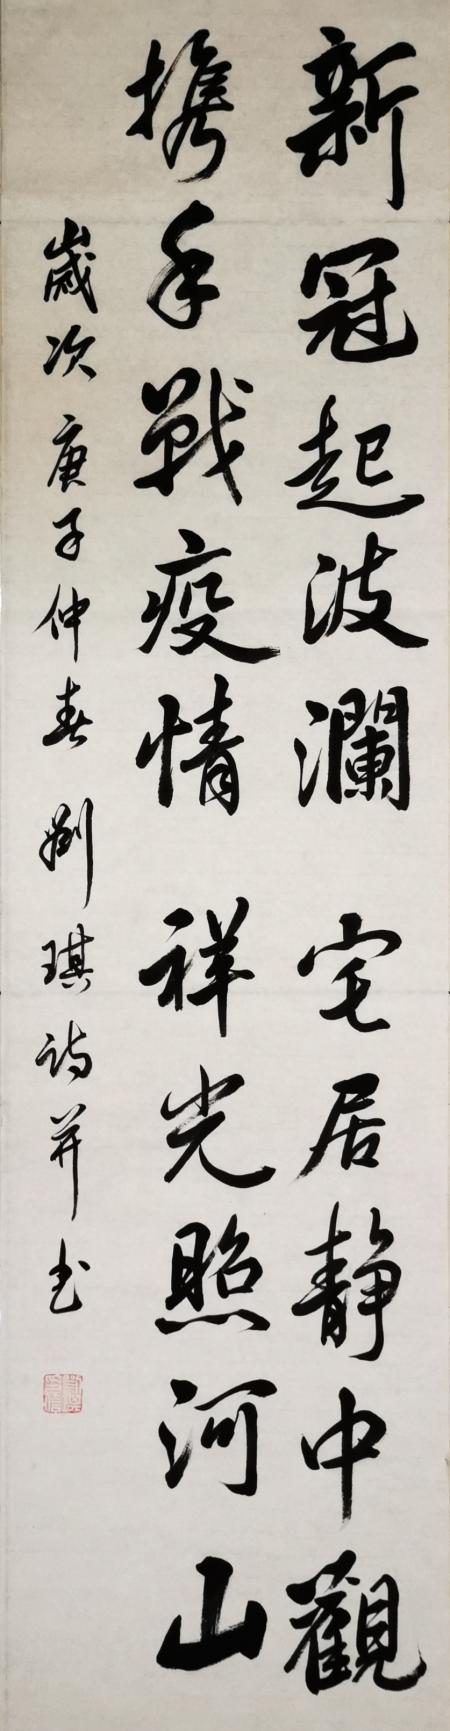 新冠起波瀾 宅居静中觀
携手戰疫情 祥光照河山
歲次庚子仲春 劉琪詩并书